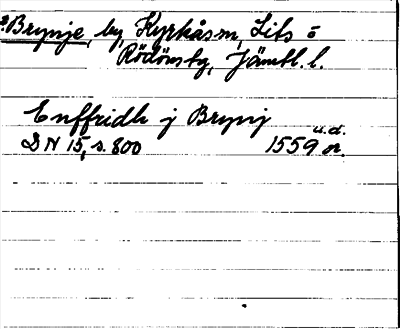 2. Brynje, by, Kyrkås sn, Lits o
Rödöns tg, Jämtl. l.
Enffridh j Brynj
u.d.
DN 15, s. 800 1559 or.